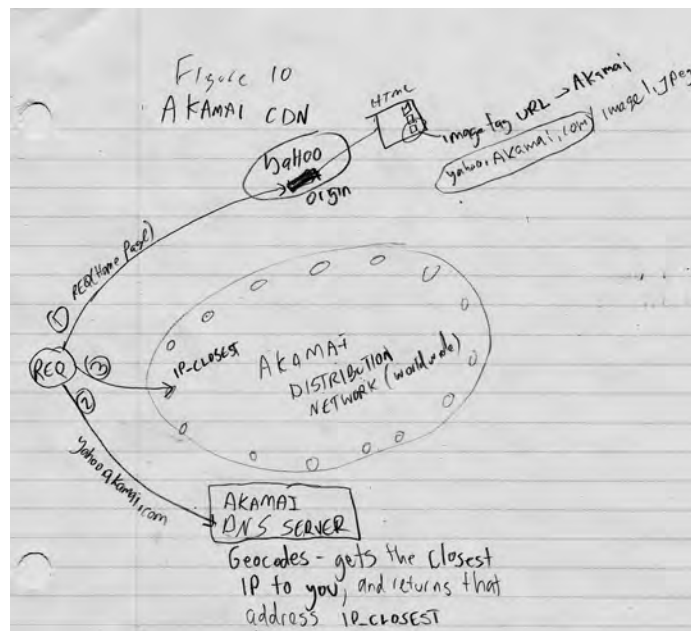 Figure 10
AKAMAI CDN
HTML
image tag URL → AKamai
yahoo.AKamai.com/image1.jpeg
yaHoo
origin
① REQ(Home Page)
REQ
③
IP_CLOSEST
②
yahoo.akamai.com
AKAMAI
DISTRIBUTION
NETWORK (worldwide)
AKAMAI
DNS SERVER
Geocodes - gets the closest
IP to you, and returns that
address IP_CLOSEST